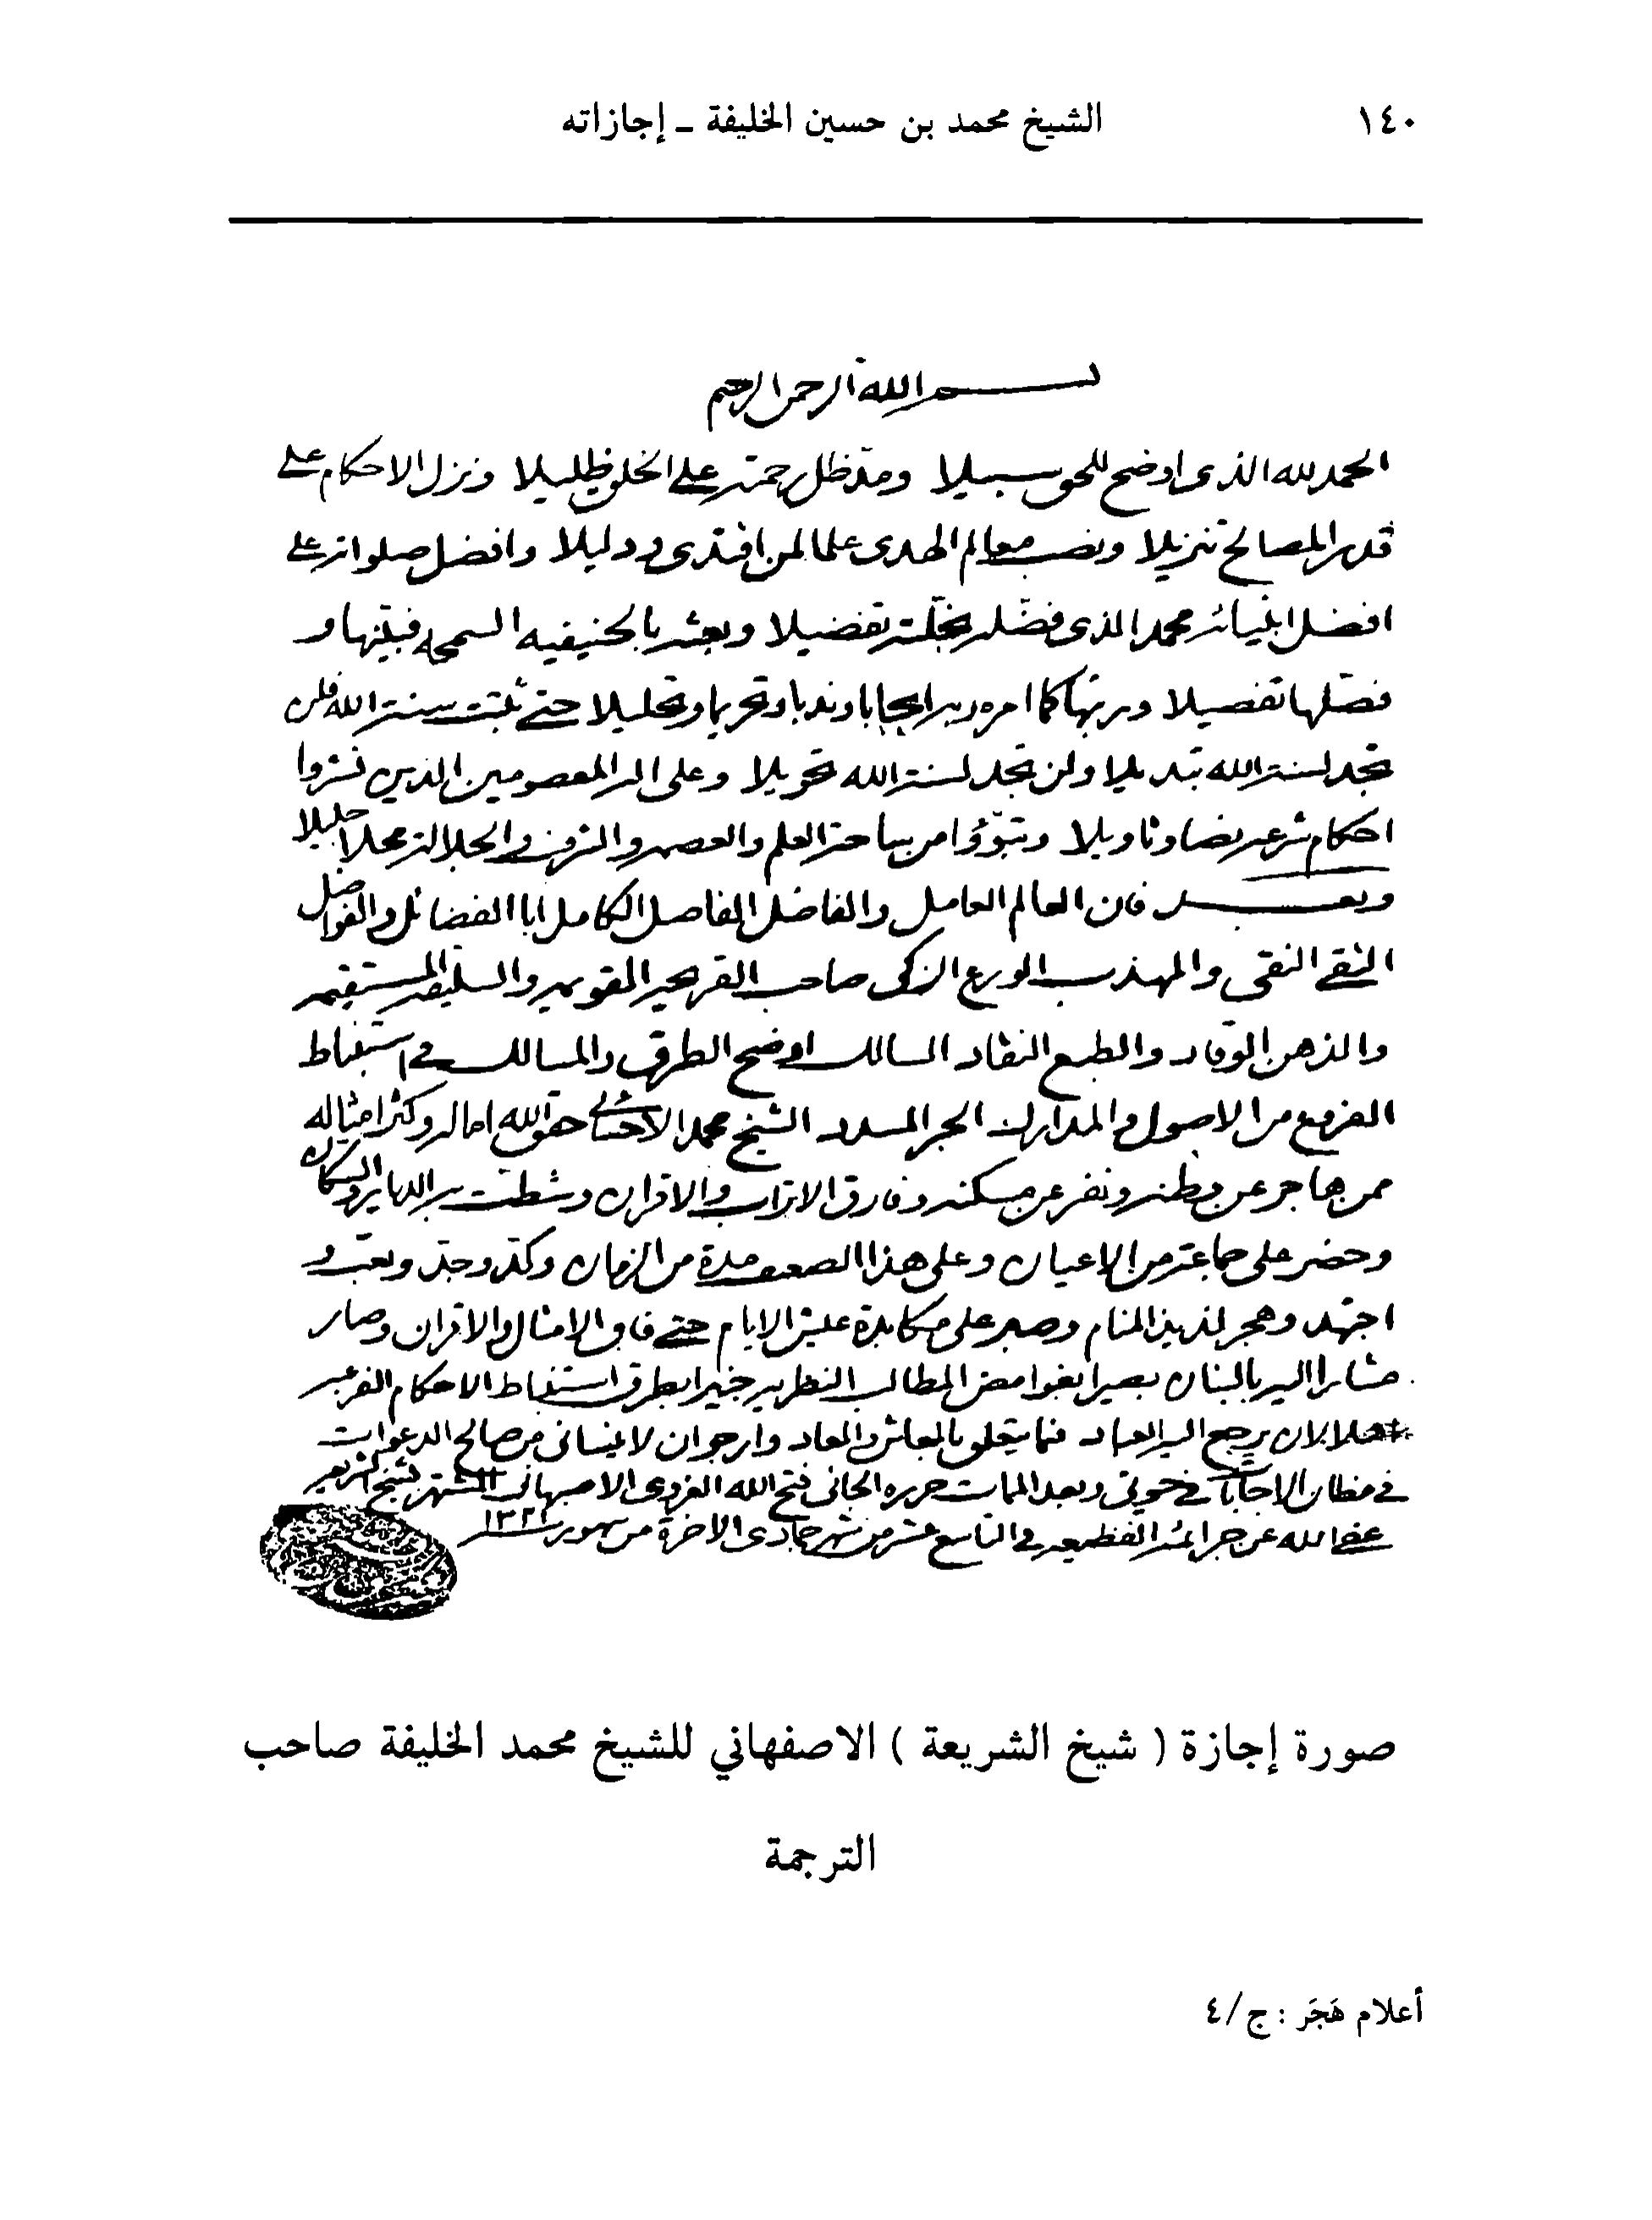 ١٤٠
الشيخ محمد بن حسين الخليفة ـ إجازاته
بسم الله الرحمن الرحيم
الحمد لله الذى اوضح للحق سبيلا ومدّ ظل رحمته على الخلق ظليلا ونزل الاحكام على
قدر المصالح تنزيلا ونصب معالم الهدى علما لمن اقتدى ودليلا وافضل صلواته على
افضل انبيائه محمد الذى فضّله بخلّته تفضيلا وبعثه بالحنيفيه السمحه فبيّنها و
فصّلها تفصيلا ورتبها كما امره ربه ايجابا وندبا وتحريما وتحليلا حتى ثبتت سنة الله فلن
تجد لسنة الله تبديلا ولن تجد لسنة الله تحويلا وعلى اله المعصومين الذين نشروا
احكام شرعه نصا وتاويلا وتبوّؤا من ساحة العلم والعصمه والشرف والجلالة محلا جليلا
وبعد فان العالم العامل والفاضل الفاصل الكامل ابا الفضائل والفواضل
التقى النقى والمهذب الورع الزكى صاحب القريحه القويمه والسليقه المستقيمه
والذهن الوقّاد والطبع النقّاد السالك اوضح الطرق والمسالك فى استنباط
الفروع من الاصول والمدارك الحبر المسدد الشيخ محمد الاحسائى حقق الله اماله وكثر امثاله
ممن هاجر عن وطنه ونفر عن مسكنه وفارق الاتراب والاقران وشطّت به الديار والسكان
وحضر على جماعة من الاعيان وعلى هذا الضعيف مدة من الزمان وكدّ وجدّ وتعب و
اجتهد وهجر لذيذ المنام وصبر على مكابدة عيش الايام حتى فاق الامثال والاقران وصار
مشارا اليه بالبنان بصيرا بغوامض المطالب النظريه خبيرا بطرق استنباط الاحكام الفرعيه
اهلا لان يرجع اليه العباد فيما يتعلق بالمعاش والمعاد وارجو ان لا ينسانى من صالح الدعوات
فى مظان الاجابات فى حيوتى وبعد الممات حرره الجانى فتح الله الغروى الاصبهانى المشتهر بشيخ الشريعه
عفا الله عن جرائمه الفظيعه فى التاسع عشر من شهر جمادى الاخرة من شهور
صورة إجازة ( شيخ الشريعة ) الاصفهاني للشيخ محمد الخليفة صاحب
الترجمة
أعلام هَجَر : ج/٤